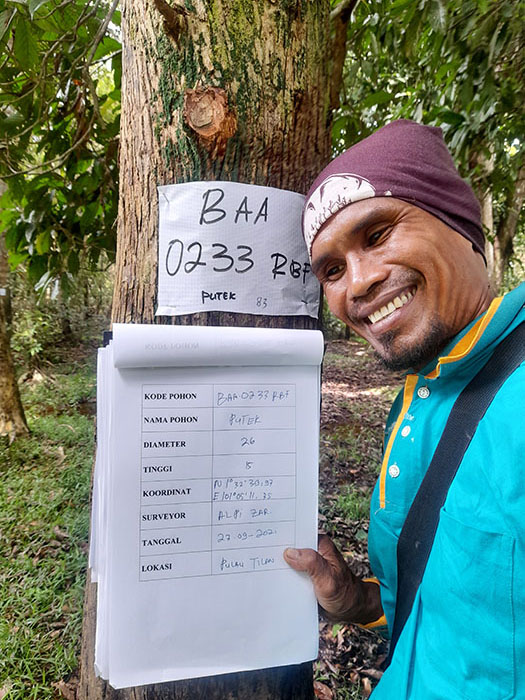 BAA
0233 RBF
PUTEK 83
KODE POHON BAA 0233 RBF
NAMA POHON PUTEK
DIAMETER 26
TINGGI 5
KOORDINAT N 1° 32' 30,97
E 101° 05' 11. 35
SURVEYOR ALPI ZAR
TANGGAL 27-09-2021
LOKASI PULAU TILAN